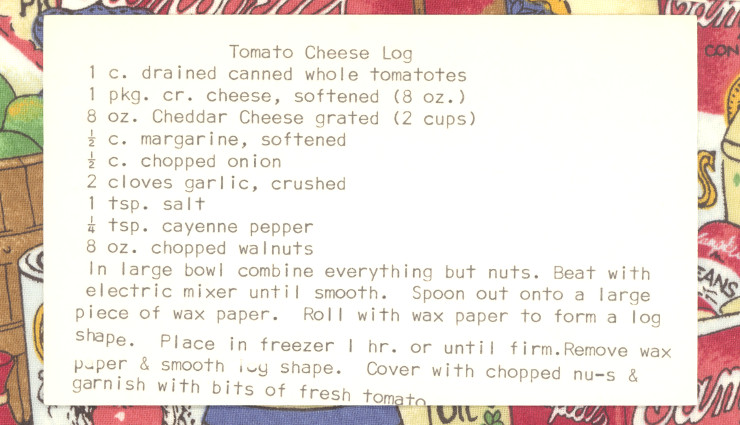 Tomato Cheese Log
1 c. drained canned whole tomatotes
1 pkg. cr. cheese, softened (8 oz.)
8 oz. Cheddar Cheese grated (2 cups)
½ c. margarine, softened
½ c. chopped onion
2 cloves garlic, crushed
1 tsp. salt
¼ tsp. cayenne pepper
8 oz. chopped walnuts
In large bowl combine everything but nuts. Beat with
electric mixer until smooth. Spoon out onto a large
piece of wax paper. Roll with wax paper to form a log
shape. Place in freezer 1 hr. or until firm.Remove wax
paper & smooth log shape. Cover with chopped nu-s &
garnish with bits of fresh tomato
CON
EANS